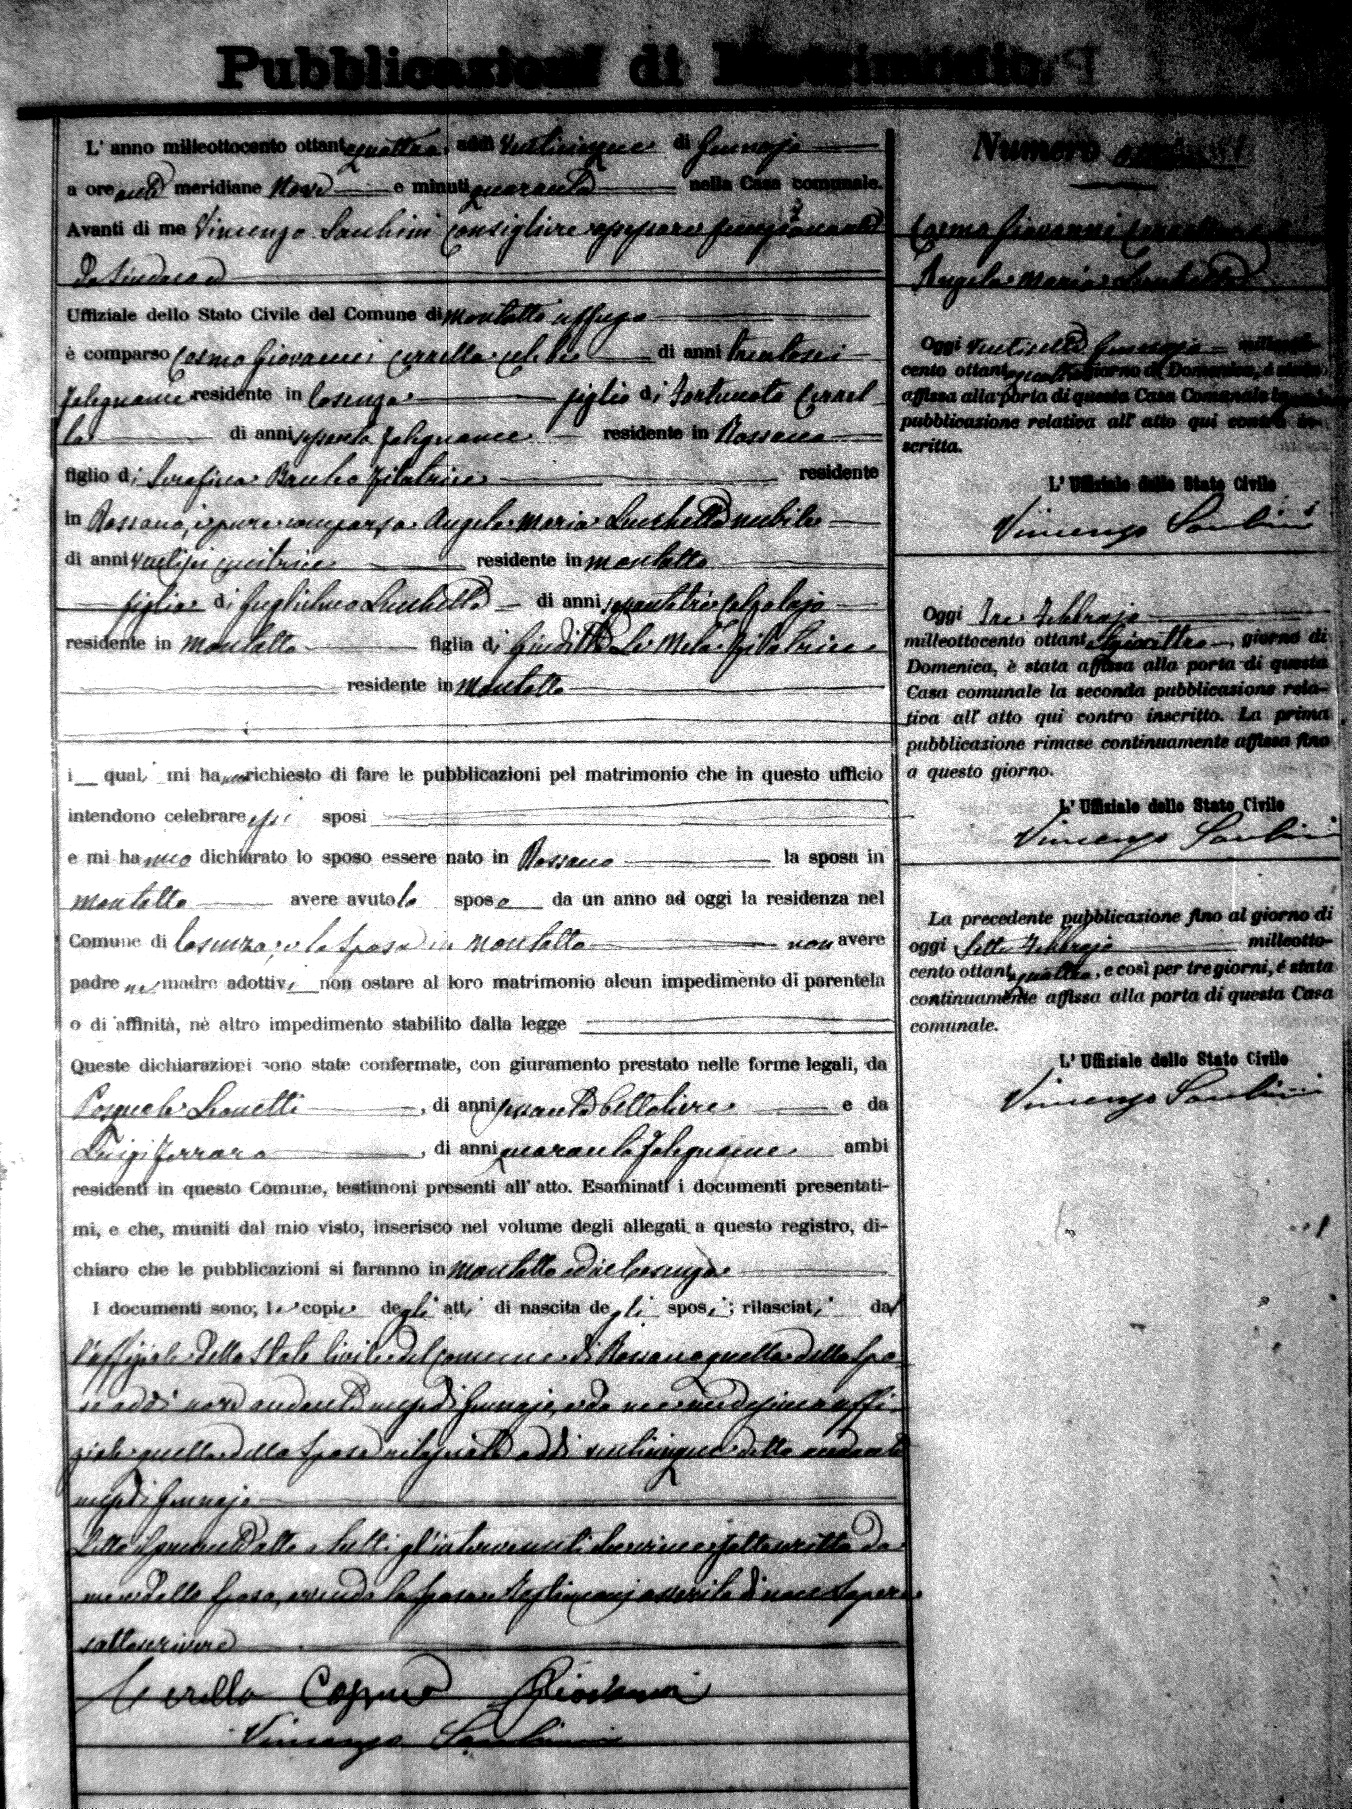 Pubblicazioni di Matrimonio
L' anno milleottocento ottantaquattro, addì venticinque di Gennajo
a ore anti meridiane Nove e minuti quaranta nella Casa comunale.
Avanti di me Vincenzo Consigliere assessore funzionante
da Sindaco
Uffiziale dello Stato Civile del Comune di Montalto Uffugo
è comparso Cosmo Giovanni Cerrella celibe di anni trentasei
falegname residente in Cosenza figlio di Fortunato Cerrel
la di anni sessanta falegname residente in Rossano
figlio di Serafina filatrice residente
in Rossano, è pure comparsa Angela Maria Luchetta nubile
di anni ventisei cucitrice residente in Montalto
figlia di Guglielmo Luchetta di anni sessantatrè Calzolajo
residente in Montalto figlia di Giuditta Le Mela filatrice
residente in Montalto
i quali mi hanno richiesto di fare le pubblicazioni pel matrimonio che in questo ufficio
intendono celebrare essi sposi
e mi hanno dichiarato lo sposo essere nato in Rossano la sposa in
Montalto avere avuto lo sposo da un anno ad oggi la residenza nel
Comune di Cosenza, e la sposa in Montalto non avere
padre nè madre adottivi non ostare al loro matrimonio alcun impedimento di parentela
o di affinità, nè altro impedimento stabilito dalla legge
Queste dichiarazioni sono state confermate, con giuramento prestato nelle forme legali, da
Pasquale Leonetti, di anni sessanta e da
Luigi Ferraro, di anni quaranta falegname ambi
residenti in questo Comune, testimoni presenti all' atto. Esaminati i documenti presentati-
mi, e che, muniti dal mio visto, inserisco nel volume degli allegati a questo registro, di-
chiaro che le pubblicazioni si faranno in Montalto ed in Cosenza
I documenti sono; le copie degli atti di nascita degli sposi; rilasciati dal
l'uffiziale dello Stato Civile del Comune di Rossano quella dello spo
so addì nove andante mese di Gennajo, e da me medesimo uffi
ziale quella della sposa rilasciata addì venticinque detto andante
mese di Gennajo
Letto il presente atto a tutti gl'intervenuti sottoscritto da
me e dallo sposo, avendo la sposa e testimonj asserito di non sapere
sottoscrivere
Cerella Cosmo Giovanni
Vincenzo
Numero
Cosmo Giovanni Cerrella
Angela Maria Luchetta
Oggi ventisette Gennajo milleotto-
cento ottantaquattro giorno di Domenica, è stata
affissa alla porta di questa Casa Comunale la
pubblicazione relativa all' atto qui contro in-
scritta.
L' Uffiziale dello Stato Civile
Vincenzo
Oggi Tre Febbrajo
milleottocento ottantaquattro, giorno di
Domenica, è stata affissa alla porta di questa
Casa comunale la seconda pubblicazione rela-
tiva all' atto qui contro inscritto. La prima
pubblicazione rimase continuamente affissa fino
a questo giorno.
L' Uffiziale dello Stato Civile
Vincenzo
La precedente pubblicazione fino al giorno di
oggi Sette Febbrajo milleotto-
cento ottantaquattro, e così per tre giorni, è stata
continuamente affissa alla porta di questa Casa
comunale.
L' Uffiziale dello Stato Civile
Vincenzo